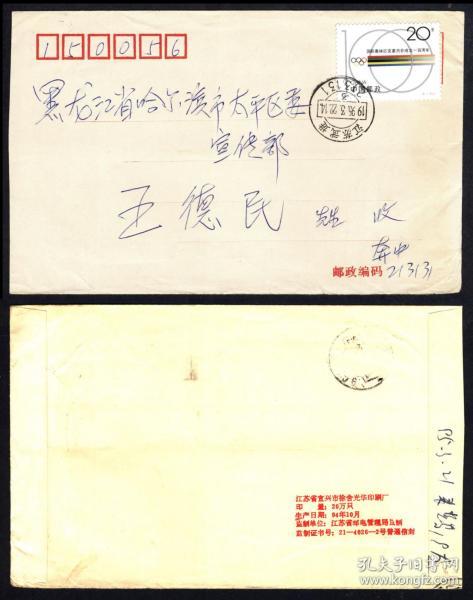 150056
20分
国际奥林匹克委员会成立一百周年
中国邮政
黑龙江省哈尔滨市太平区委
宣传部
王德民 先生 收
奔中
邮政编码 213131
江苏省宜兴市徐舍光华印刷厂
印 量：20万只
生产日期：94年10月
监制单位：江苏省邮电管理局监制
监制证书号：21-4026-2号普通信封
孔夫子旧书网